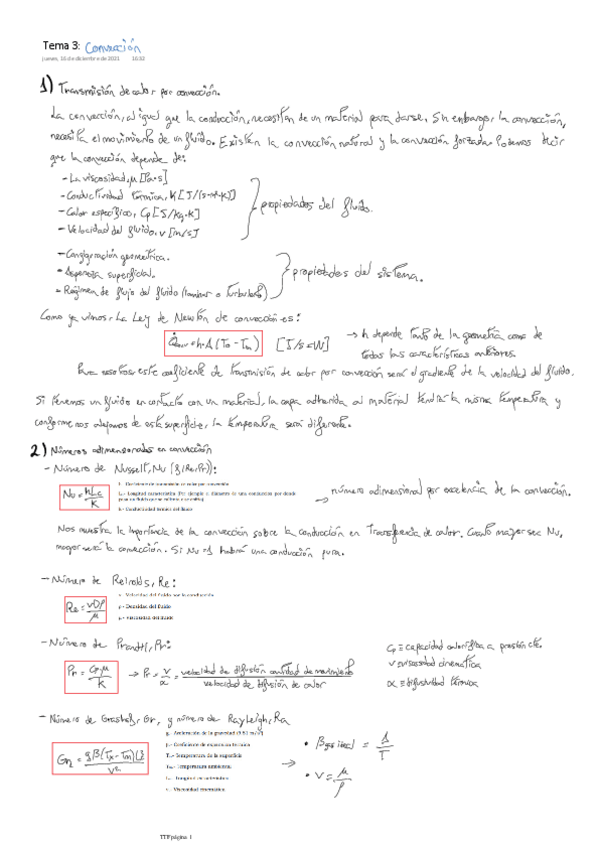 Tema 3: Convección
jueves, 16 de diciembre de 2021 10:32
1) Transmisión de calor por convección.
La convección, al igual que la conducción, necesitan de un material para darse. Sin embargo, la convección,
necesita el movimiento de un fluido. Existen la convección natural y la convección forzada. Podemos decir
que la convección depende de:
- La viscosidad, μ [Pa·s]
- Conductividad térmica, K [J/(s·m·K)]
- Calor específico, Cp [J/kg·K]
- Velocidad del fluido, v [m/s]
propiedades del fluido.
- Configuración geométrica.
- Aspereza superficial.
- Régimen de flujo del fluido (laminar o turbulento)
propiedades del sistema.
Como ya vimos, La Ley de Newton de convección es:
= h·A (T - T∞) [J/s = W] → h depende tanto de la geometría como de
todas las características anteriores.
Para nosotros este coeficiente de transmisión de calor por convección será el gradiente de la velocidad del fluido.
Si tenemos un fluido en contacto con un material, la capa adherida al material tendrá la misma temperatura y
conforme nos alejamos de esta superficie, la temperatura será diferente.
2) Números adimensionales en convección
- Número de Nusselt, Nu (f(Re,Pr)):
Nu = hLc / K
h.- Coeficiente de transmisión de calor por convección
Lc.- Longitud característica (Por ejemplo el diámetro de una conducción por donde
k.- Conductividad térmica del fluido
→ número adimensional por excelencia de la convección.
Nos muestra la importancia de la convección sobre la conducción en Transferencia de calor. Cuanto mayor sea Nu,
mayor será la convección. Si Nu = 1 habrá una conducción pura.
- Número de Reinolds, Re:
Re = vDρ / μ
v.- Velocidad del fluido por la conducción
ρ.- Densidad del fluido
μ.- Viscosidad del fluido
- Número de Prandtl, Pr:
Pr = Cp·μ / K → Pr = ν / α = velocidad de difusión cantidad de movimiento / velocidad de difusión de calor
Cp ≡ capacidad calorífica a presión cte.
ν ≡ viscosidad cinemática
α ≡ difusividad térmica
- Número de Grashof, Gr, y número de Rayleigh, Ra
g.- Aceleración de la gravedad (9.81 m/s²)
β.- Coeficiente de expansión térmica
T.- Temperatura de la superficie
T∞.- Temperatura ambiente
ν.- Viscosidad cinemática
→ • β gas ideal = 1 / T
• ν = μ / ρ
TTF página 1